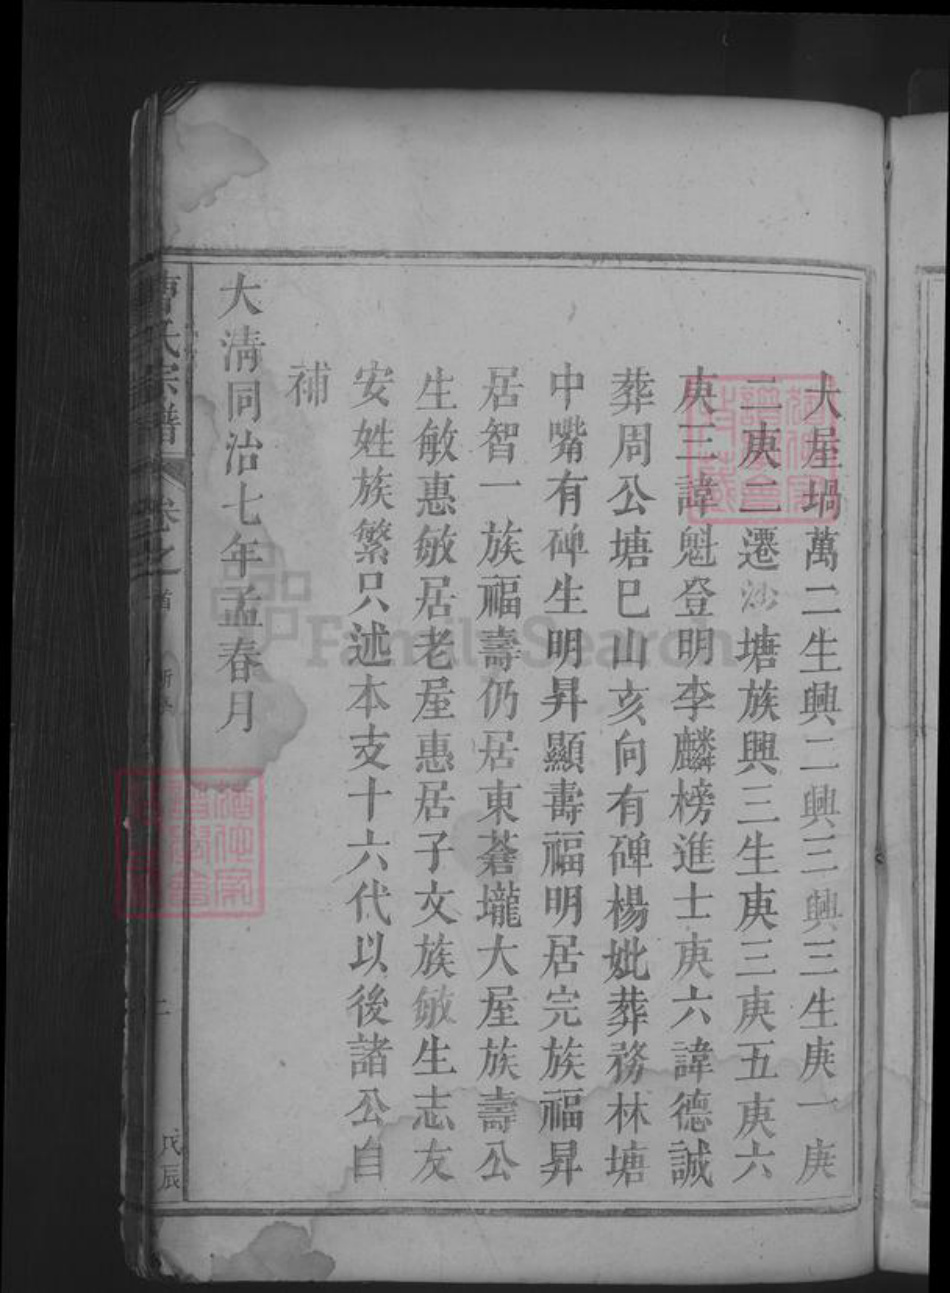 大屋堝萬二生興二興三興三生庚一庚
二庚二遷沙塘族興三生庚三庚五庚六
庚三諱魁登明李麟榜進士庚六諱德誠
葬周公塘巳山亥向有碑楊妣葬務林塘
中嘴有碑生明昇顯壽福明居完族福昇
居智一族福壽仍居東蒼壠大屋族壽公
生敏惠敏居老屋惠居子文族敏生志友
安姓族繁只述本支十六代以後諸公自
補
大淸同治七年孟春月
曹氏宗譜 卷之首
戊辰
FamilySearch